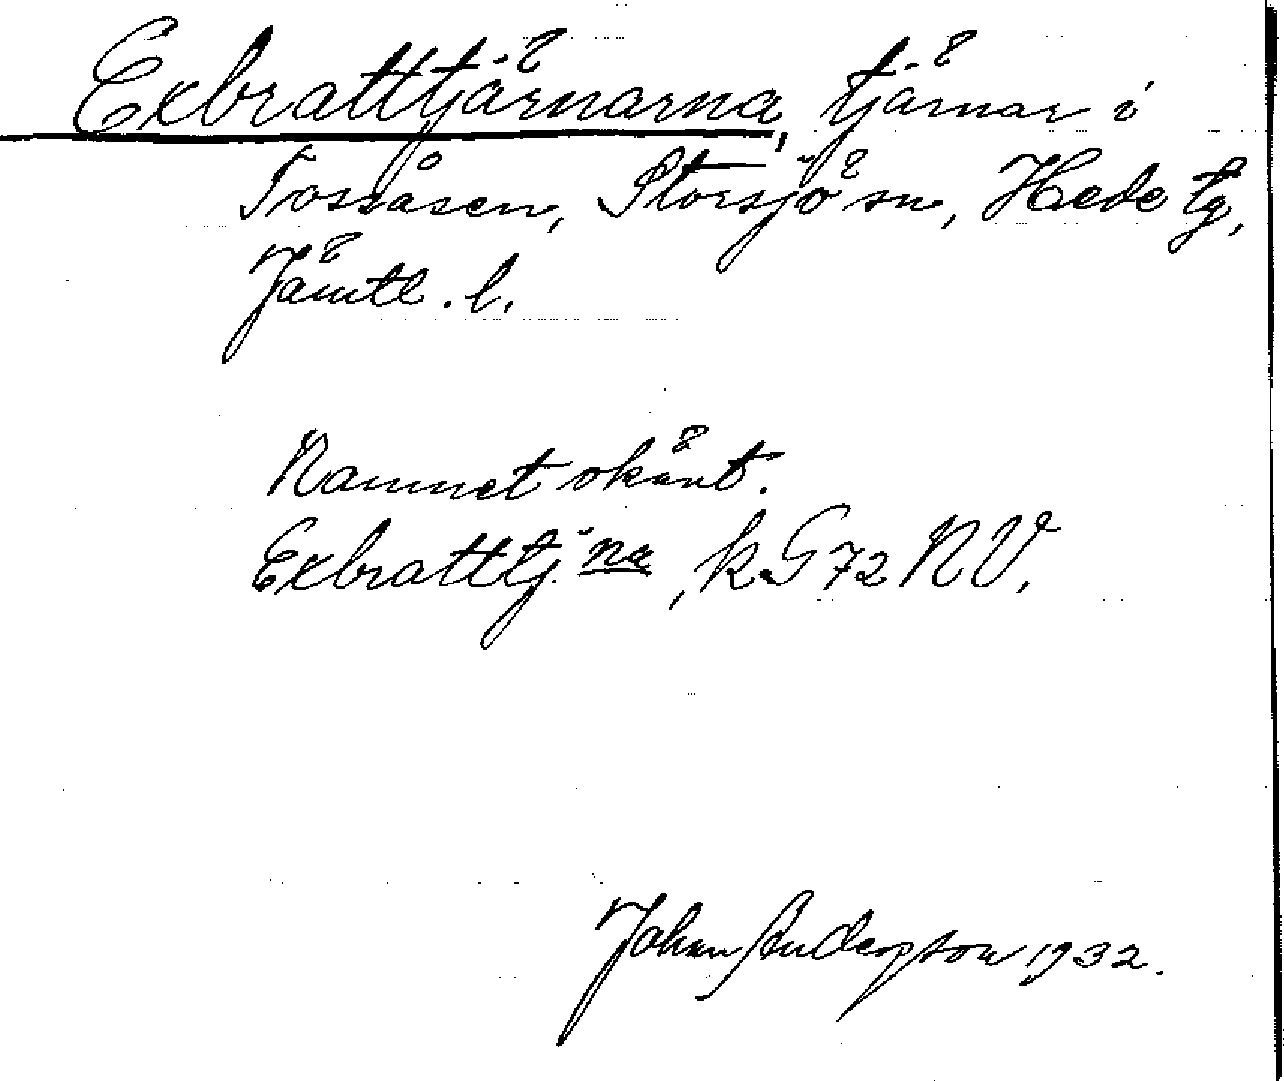 Exbrattjärnarna, tjärnar i
Tossåsen, Storsjö sn, Hede tg,
Jämtl. l.
Namnet okänt.
Exbratttj:na, k. G 72 NV.
Johan Anderson 1932.